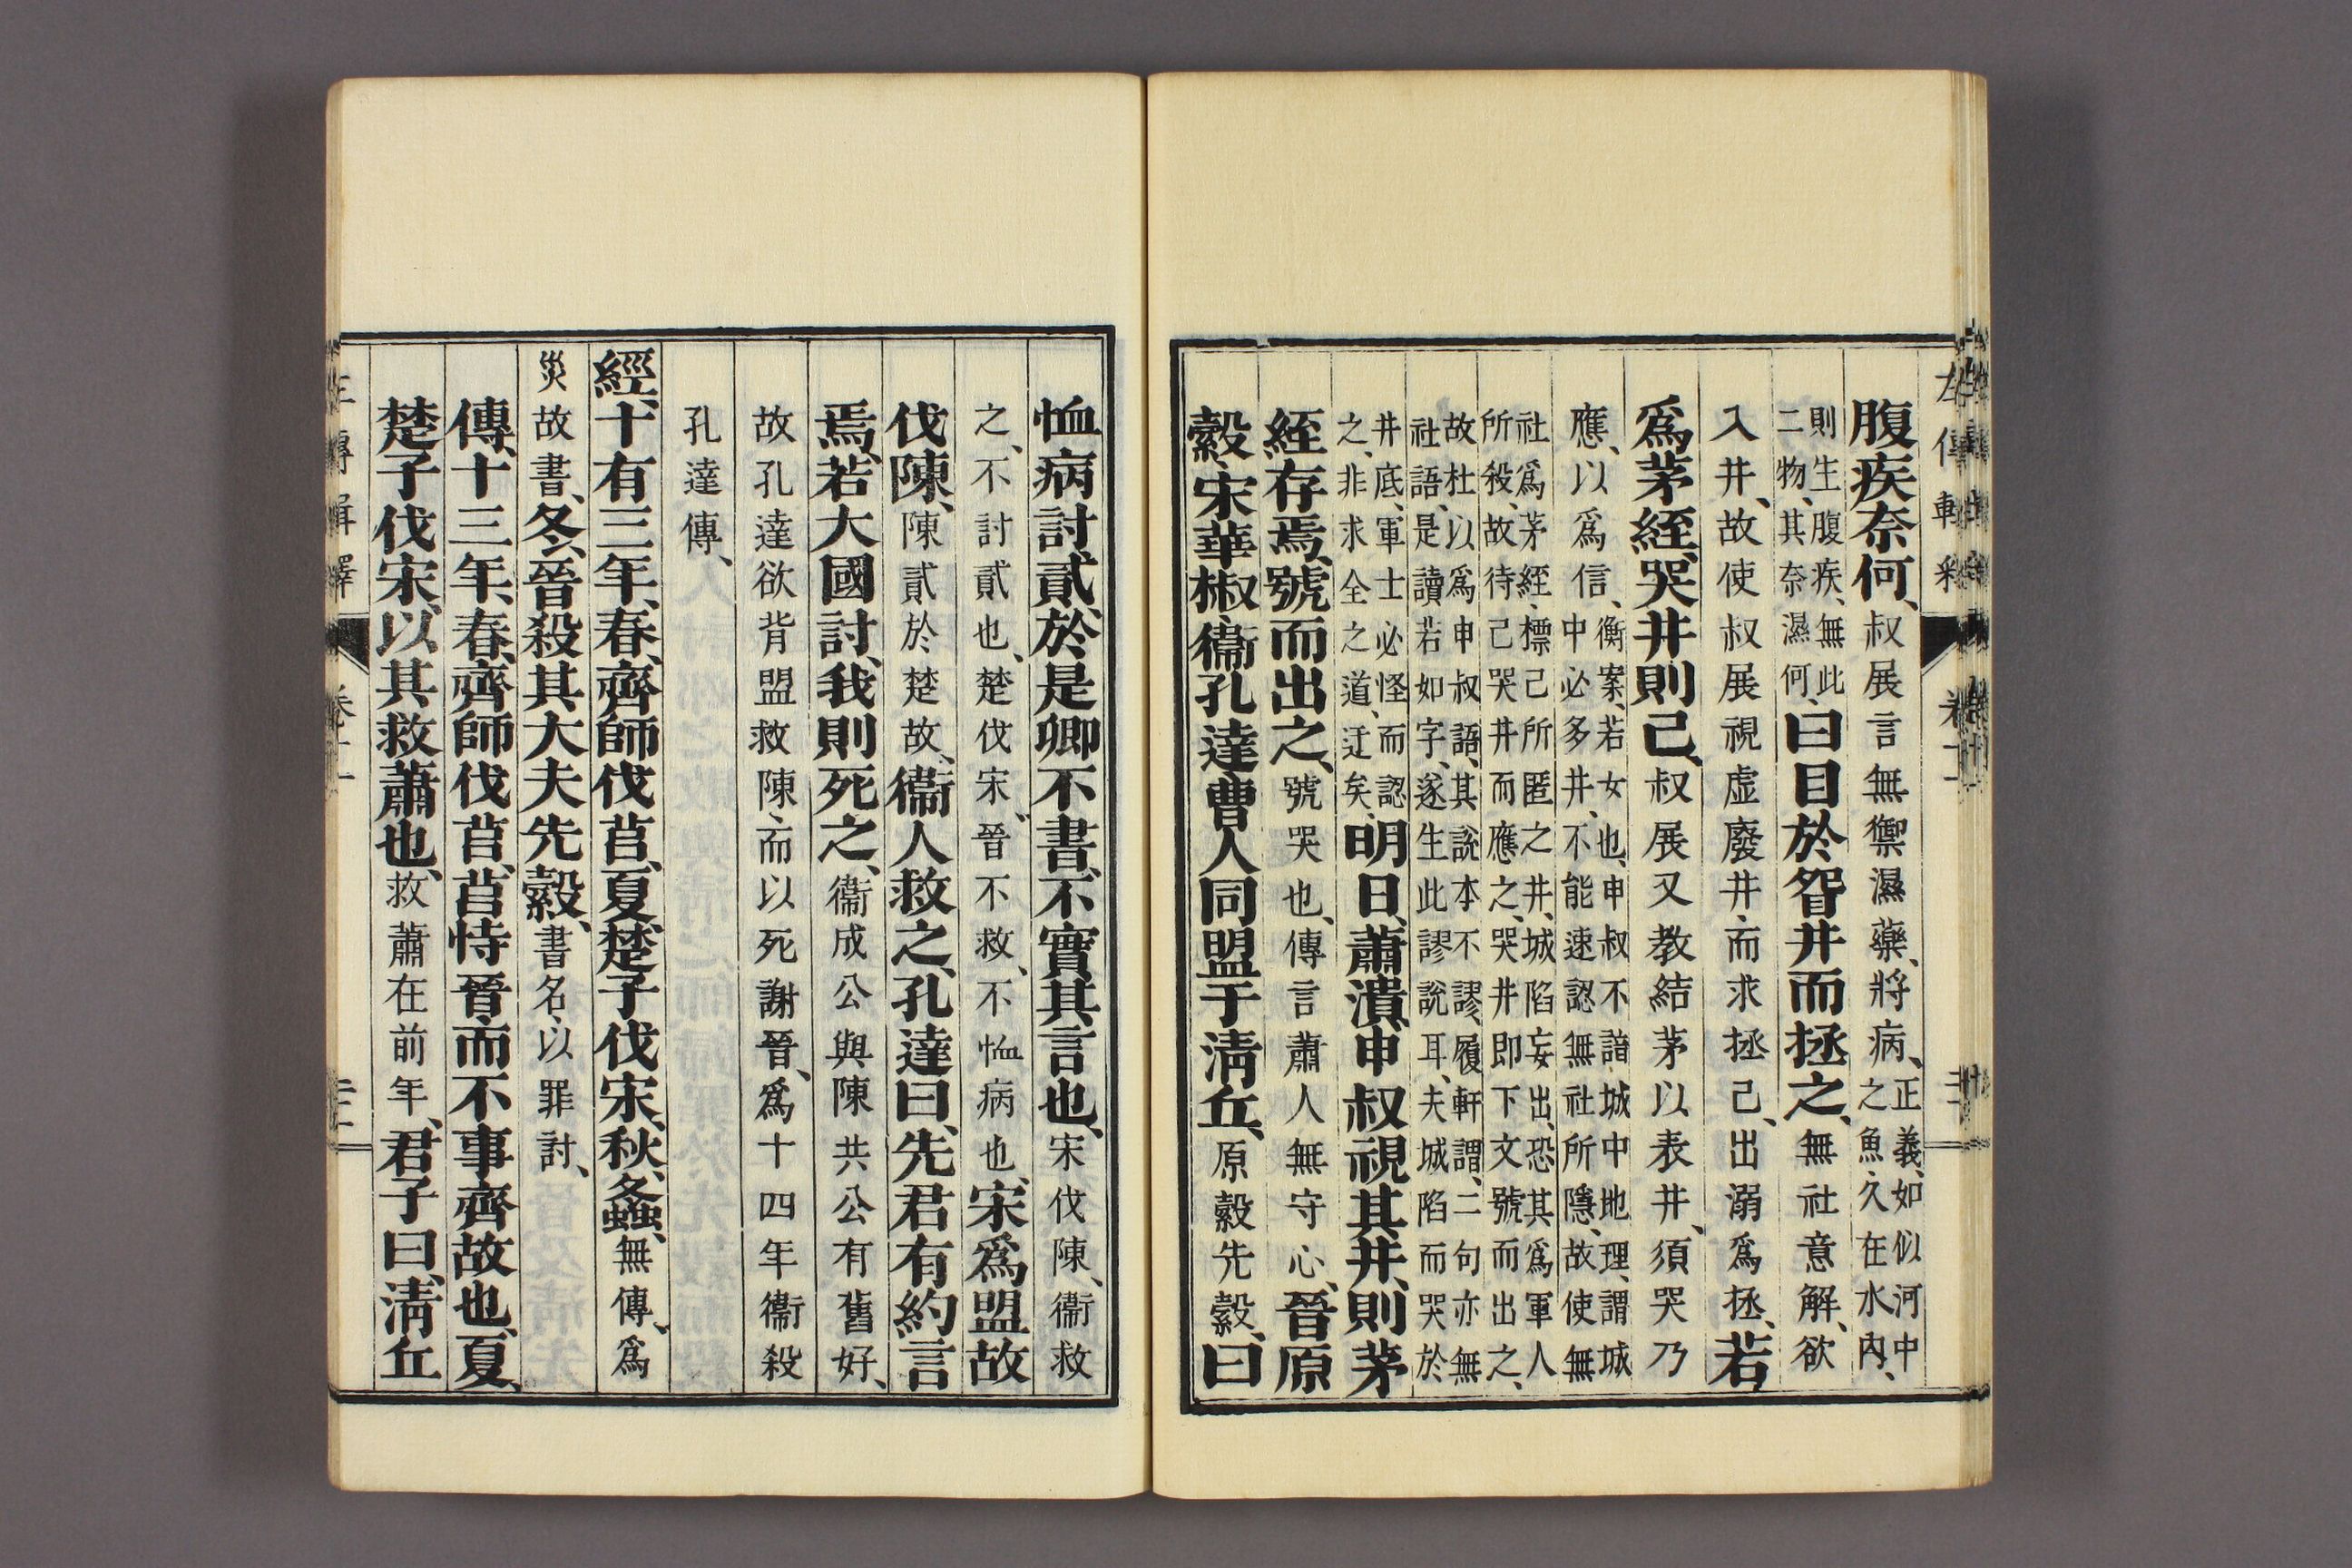 腹疾奈何、叔展言無禦濕藥、將病、正義、如似河中之魚、久在水內、
則生腹疾、無此二物、其奈濕何、曰目於眢井而拯之、無社意解、欲
入井、故使叔展視虛廢井、而求拯己、出溺爲拯、若
爲茅絰、哭井則己、叔展又教結茅以表井、須哭乃
應、以爲信、衡案、若女也、申叔不諳城中地理、謂城中必多井、不能速認無社所隱、故使無
社爲茅絰、標己所匿之井、城陷妄出、恐其爲軍人所殺、故待己哭井而應之、哭井即下文號而出之、
故杜以爲申叔語、其說本不謬、履軒謂、二句亦無社語、是讀若如字、遂生此謬說耳、夫城陷而哭於
井底、軍士必怪而認之、非求全之道、迂矣、明日、蕭潰、申叔視其井、則茅
絰存焉、號而出之、號哭也、傳言蕭人無守心、晉原
縠、宋華椒、衞孔達、曹人同盟于清丘、原縠先縠、曰
恤病討貳、於是卿不書、不實其言也、宋伐陳、衞救
之、不討貳也、楚伐宋、晉不救、不恤病也、宋爲盟故
伐陳、陳貳於楚故、衞人救之、孔達曰、先君有約言
焉、若大國討、我則死之、衞成公與陳共公有舊好、
故孔達欲背盟救陳、而以死謝晉、爲十四年衞殺
孔達傳、
經、十有三年、春、齊師伐莒、夏、楚子伐宋、秋、螽、無傳、爲
災故書、冬、晉殺其大夫先縠、書名、以罪討、
傳、十三年、春、齊師伐莒、莒恃晉、而不事齊故也、夏、
楚子伐宋、以其救蕭也、救蕭在前年、君子曰、清丘